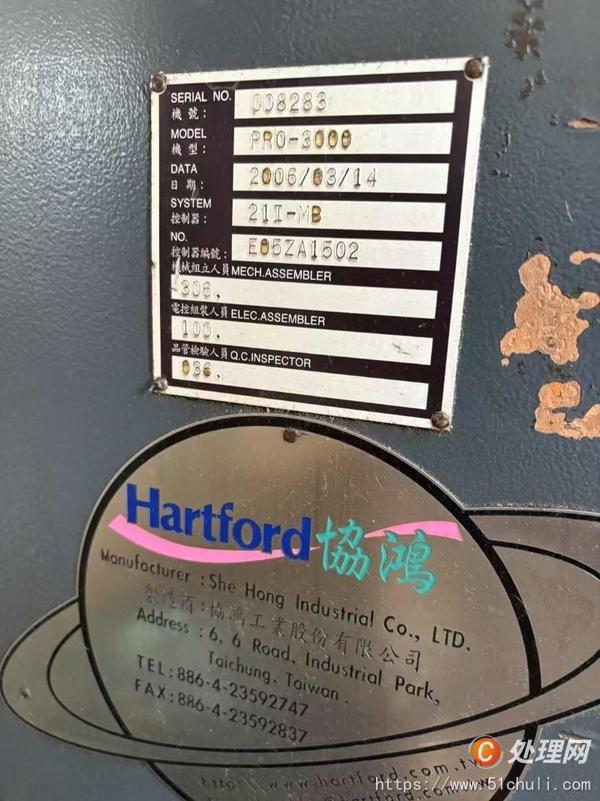 SERIAL NO. 008283
機號：
MODEL PRO-3000
機型：
DATA 2006/03/14
日期：
SYSTEM 21I-MB
控制器：
NO. E05ZA1502
控制器編號：
機械組立人員 MECH.ASSEMBLER
306.
電控組裝人員 ELEC.ASSEMBLER
100.
品管檢驗人員 Q.C.INSPECTOR
036.
Hartford 協鴻
Manufacturer : She Hong Industrial Co., LTD.
製造商：協鴻工業股份有限公司
Address : 6, 6 Road, Industrial Park,
Taichung, Taiwan.
TEL:886-4-23592747
FAX:886-4-23592837
http://www.hartford.com.tw
hartford.com.tw
C 处理网
https://www.51chuli.com